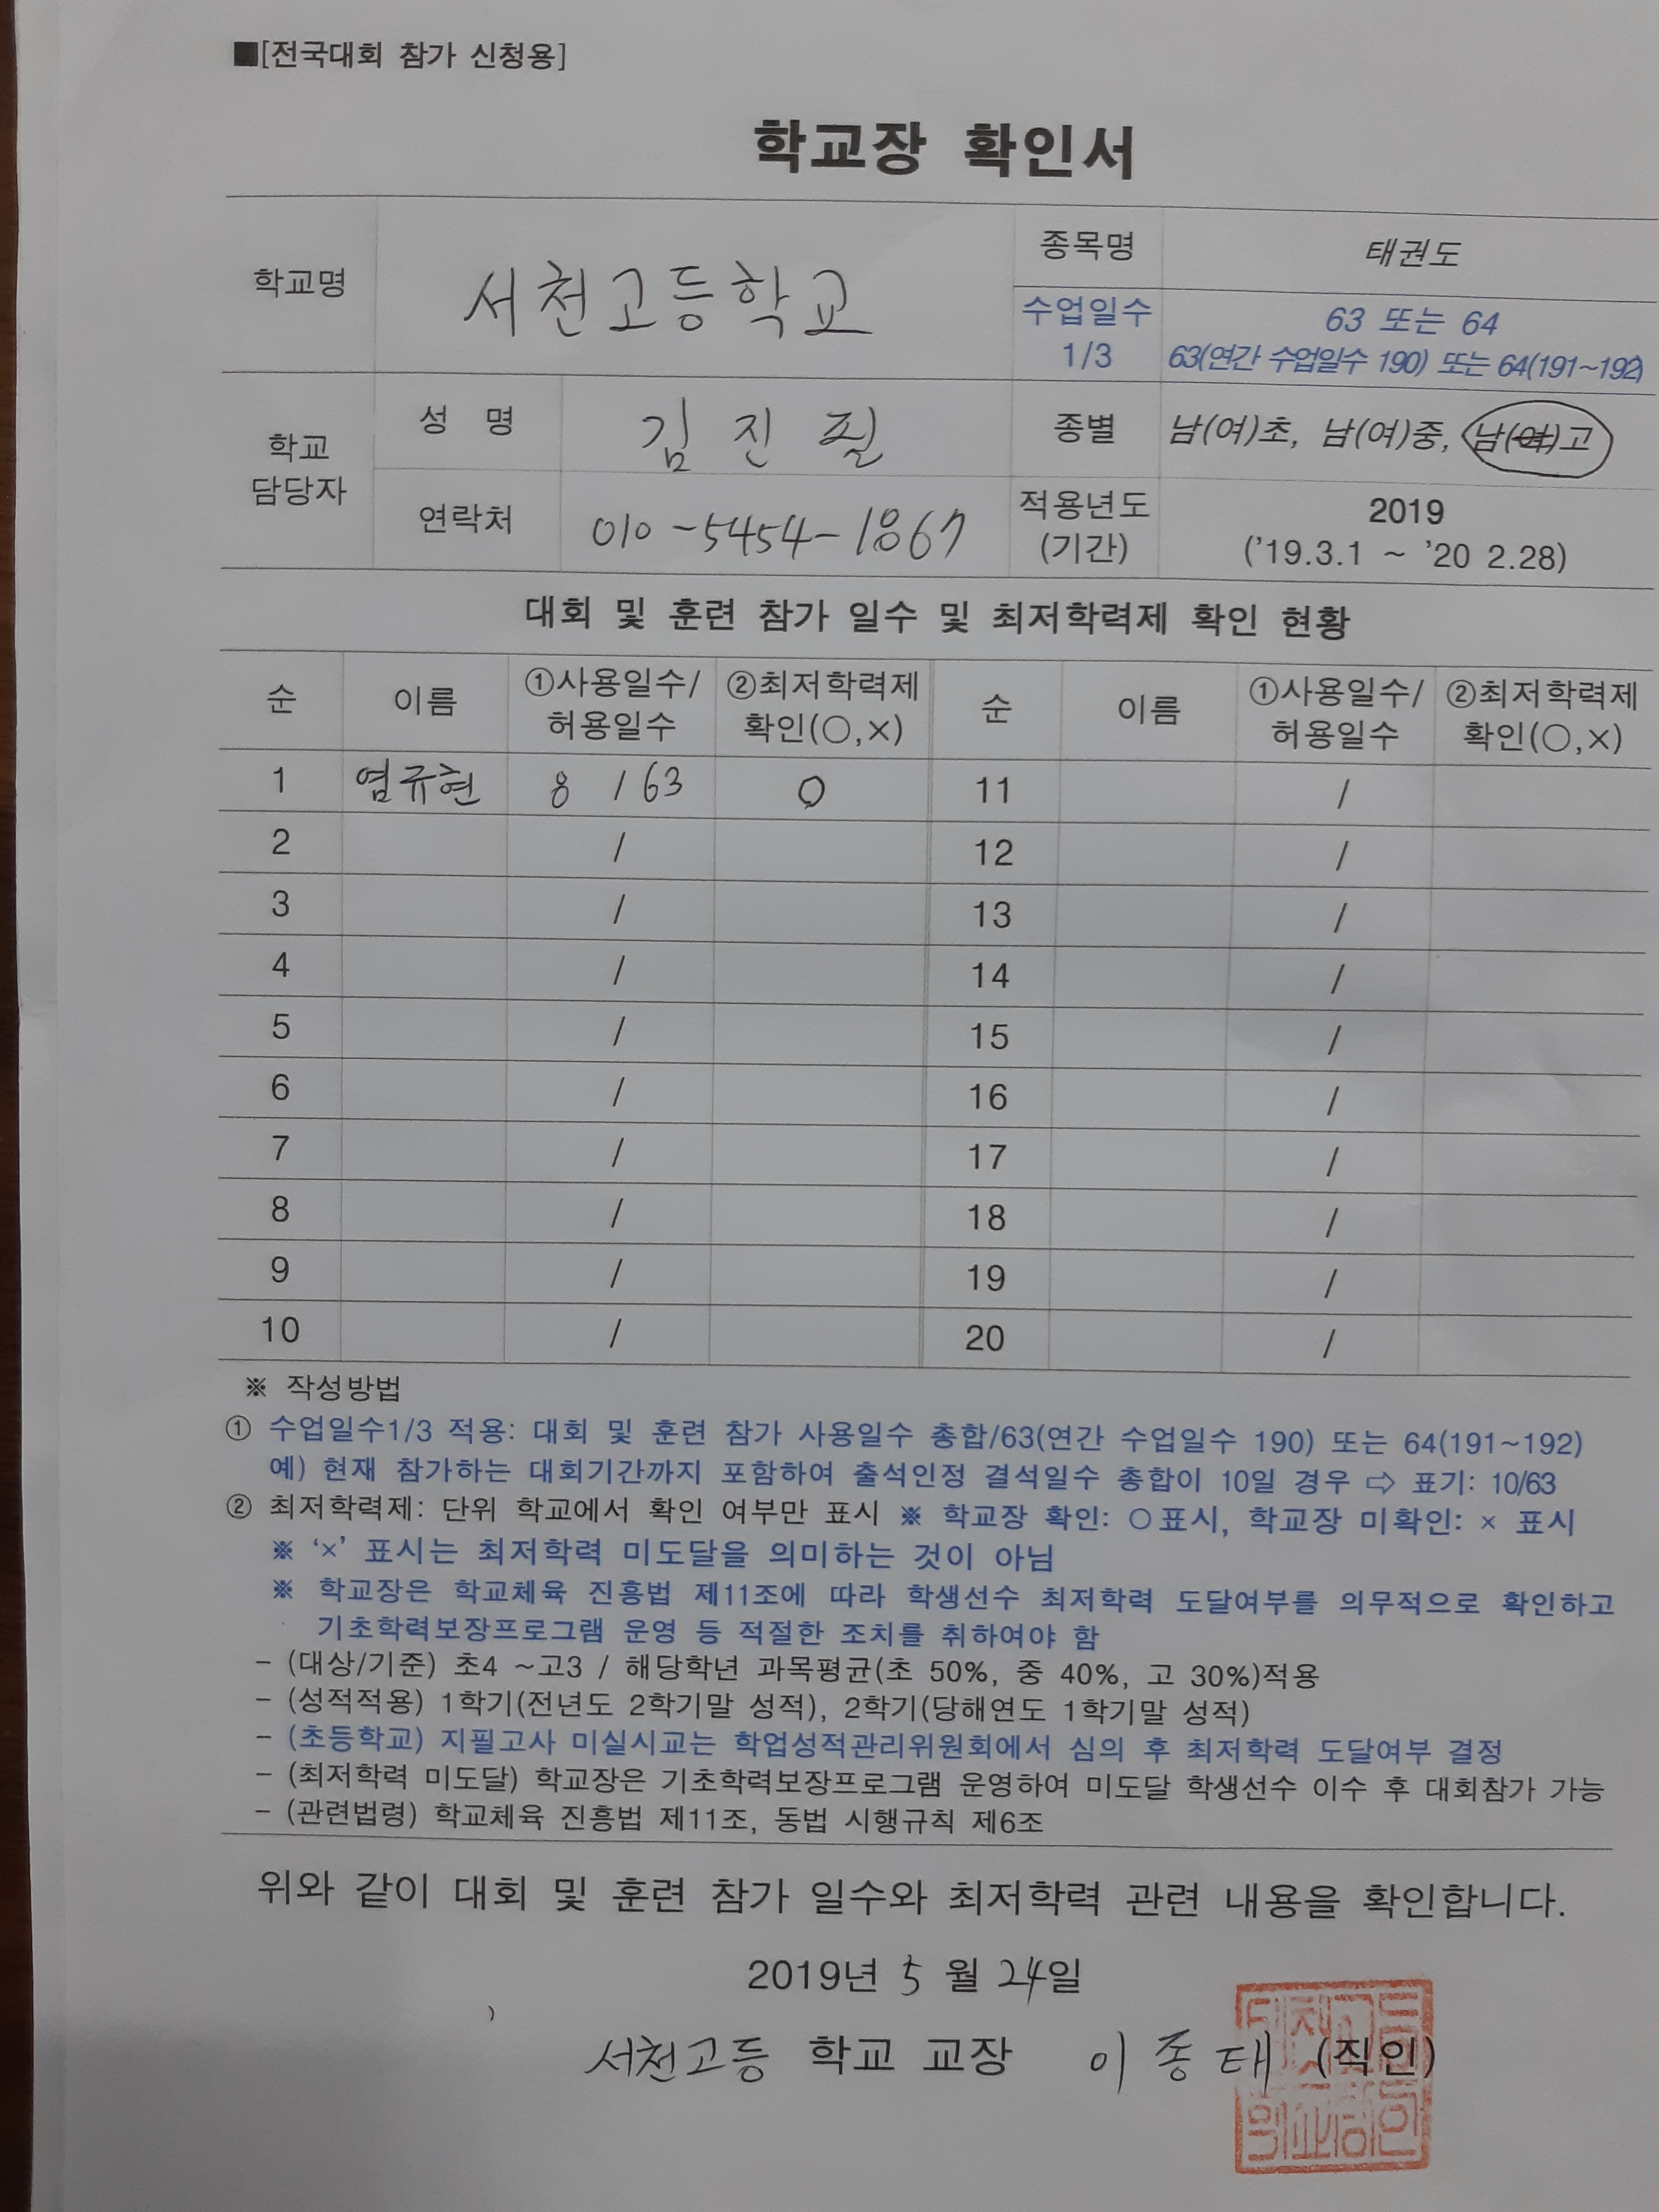 ■[전국대회 참가 신청용]
학교장 확인서
학교명 서천고등학교 종목명 태권도
수업일수 1/3 63 또는 64
63(연간 수업일수 190) 또는 64(191~192)
학교 담당자 성 명 김진필 종별 남(여)초, 남(여)중, 남(여)고
연락처 010-5454-1867 적용년도 (기간) 2019
('19.3.1 ~ '20 2.28)
대회 및 훈련 참가 일수 및 최저학력제 확인 현황
순 이름 ①사용일수/허용일수 ②최저학력제 확인(○,×) 순 이름 ①사용일수/허용일수 ②최저학력제 확인(○,×)
1 염규현 8 / 63 ○ 11 /
2 / 12 /
3 / 13 /
4 / 14 /
5 / 15 /
6 / 16 /
7 / 17 /
8 / 18 /
9 / 19 /
10 / 20 /
※ 작성방법
① 수업일수1/3 적용: 대회 및 훈련 참가 사용일수 총합/63(연간 수업일수 190) 또는 64(191~192)
예) 현재 참가하는 대회기간까지 포함하여 출석인정 결석일수 총합이 10일 경우 ⇨ 표기: 10/63
② 최저학력제: 단위 학교에서 확인 여부만 표시 ※ 학교장 확인: ○표시, 학교장 미확인: × 표시
※ '×' 표시는 최저학력 미도달을 의미하는 것이 아님
※ 학교장은 학교체육 진흥법 제11조에 따라 학생선수 최저학력 도달여부를 의무적으로 확인하고
기초학력보장프로그램 운영 등 적절한 조치를 취하여야 함
- (대상/기준) 초4 ~고3 / 해당학년 과목평균(초 50%, 중 40%, 고 30%)적용
- (성적적용) 1학기(전년도 2학기말 성적), 2학기(당해연도 1학기말 성적)
- (초등학교) 지필고사 미실시교는 학업성적관리위원회에서 심의 후 최저학력 도달여부 결정
- (최저학력 미도달) 학교장은 기초학력보장프로그램 운영하여 미도달 학생선수 이수 후 대회참가 가능
- (관련법령) 학교체육 진흥법 제11조, 동법 시행규칙 제6조
위와 같이 대회 및 훈련 참가 일수와 최저학력 관련 내용을 확인합니다.
2019년 5 월 24일
서천고등 학교 교장 이종태 (직인)